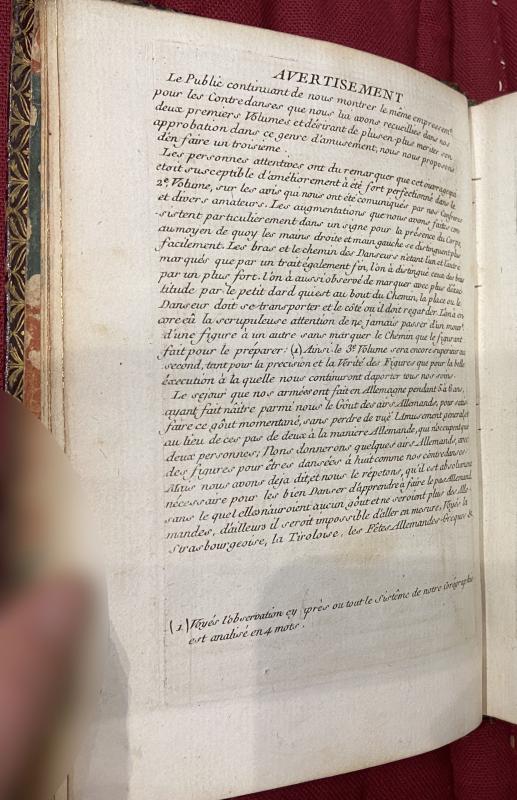 AVERTISEMENT
Le Public continuant de nous montrer le même empressem.t
pour les Contredanses que nous lui avons recueillies dans nos
deux premiers Volumes et désirant de plus-en-plus meriter son
approbation dans ce genre d'amusement, nous nous proposons
d'en faire un troisieme.
Les personnes attentives ont du remarquer que cet ouvrage qui
etoit susceptible d'améliorement à été fort perfectionné dans le
2.e Volume, sur les avis qui nous ont été comuniqués par nos Confreres
et divers amateurs. Les augmentations que nous avons faites con-
sistent particulièrement dans un signe pour la présence du Corps,
au moyen de quoy les mains droite et main gauche se distinguent plus
facilement. Les bras et le chemin des Danseurs n'etant l'un et l'autre
marqués que par un trait également fin, l'on à distingué ceux des bras
par un plus fort. l'on à aussi observé de marquer avec plus d'exac-
titude par le petit dard qui est au bout du Chemin, la place ou le
Danseur doit se transporter et le côté ou il doit regarder. L'on à en
core eû la scrupuleuse attention de ne jamais passer d'un mouv.t
d'une figure à un autre sans marquer le Chemin que le figurant
fait pour le préparer. (1) Ainsi le 3.e Volume sera encore superieur au
second, tant pour la precision et la Vérité des Figures que pour la belle
éxécution à la quelle nous continuront d'aporter tous nos soins.
Le sejour que nos armées ont fait en Allemagne pendant 5 à 6 ans,
ayant fait naître parmi nous le Goût des airs Allemands, pour satis
faire ce goût momentané, sans perdre de vuë l'Amusement general, et
au lieu de ces pas de deux à la maniere Allemande, qui n'ocupent que
deux personnes; Nous donnerons quelques airs Allemands, avec
des figures pour êtres dansées à huit comme nos contredanses:
Mais nous avons deja dit, et nous le répetons, qu'il est absolument
nécessaire pour les bien Danser d'apprendre à faire le pas Allemand
sans le quel elles n'auroient aucun goût et ne seroient plus des Alle-
mandes, d'ailleurs il seroit impossible d'aller en mesure, Voyés la
Strasbourgeoise, la Tiroloise, les Fêtes Allemandes-Greques &
(1) Voyés l'observation cy après ou tout le Sistême de notre Corégraphie
est analisé en 4 mots.